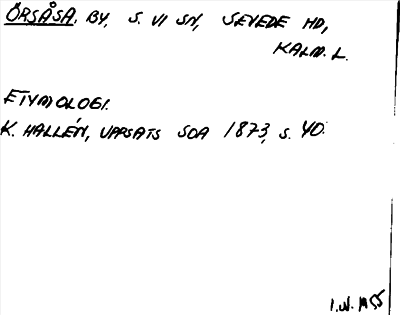 ÖRSÅSA. BY, S. VI SN, SEVEDE HD,
KALM. L.
ETYMOLOGI.
K. HALLÉN, UPPSATS SOA 1873, S. 40.